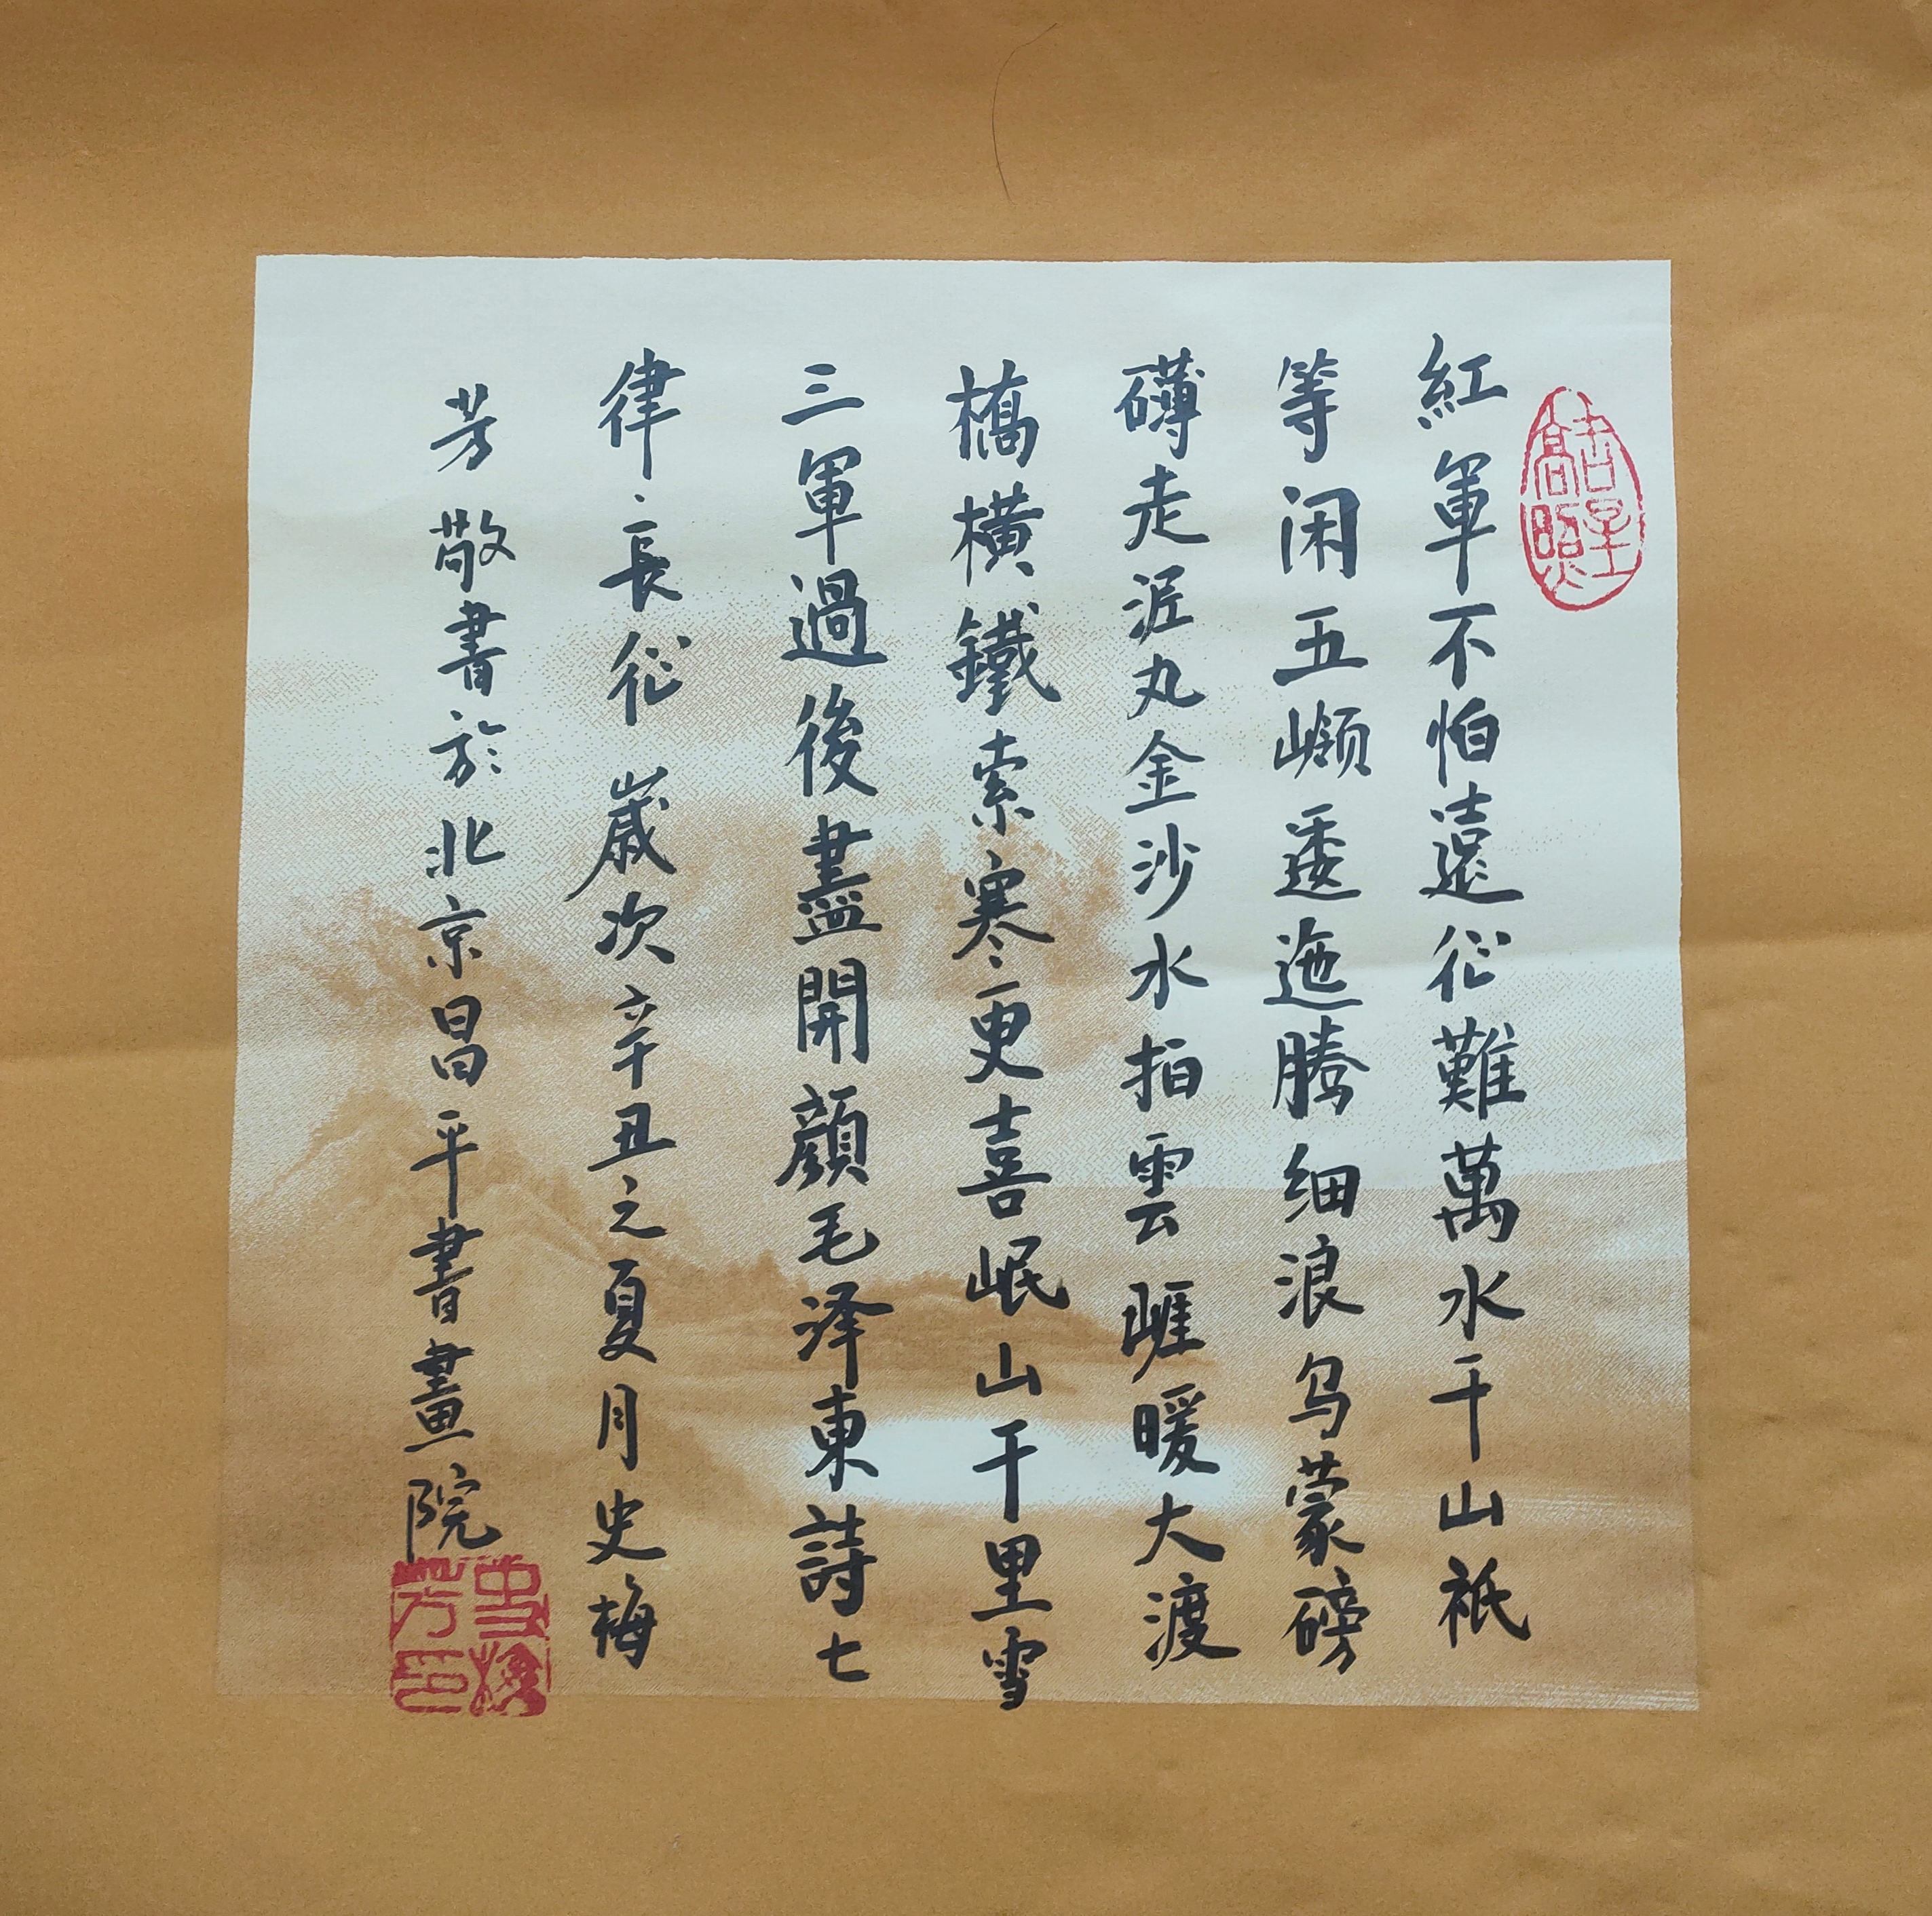 吉星高照
紅軍不怕遠征難萬水千山祇
等闲五嶺逶迤騰细浪乌蒙磅
礴走泥丸金沙水拍雲崖暖大渡
橋橫鐵索寒更喜岷山千里雪
三軍過後盡開顏毛泽東詩七
律·長征歲次辛丑之夏月史梅
芳敬書於北京昌平書畫院
史梅芳印